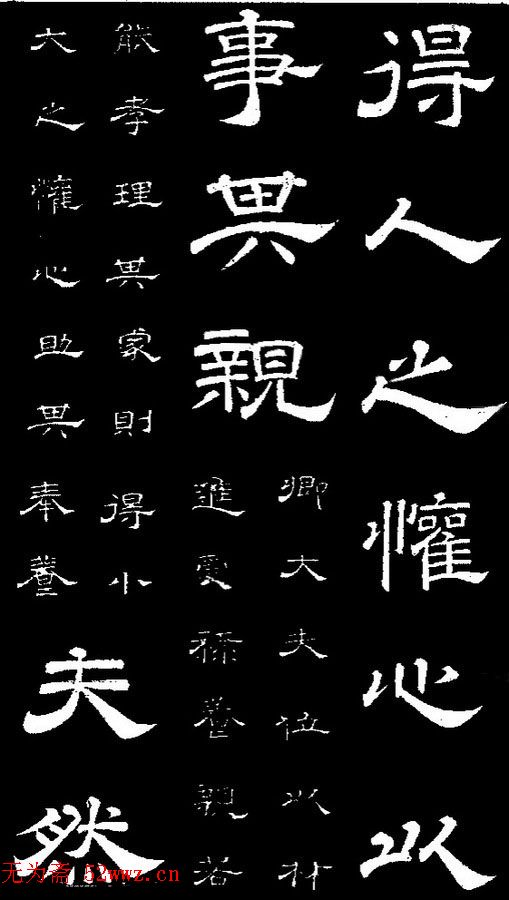 得人之懽心以
事其親
卿大夫位以材
進受祿養親若
能孝理其家則得小
大之懽心助其奉養
夫然
无为斋 52wwz.cn